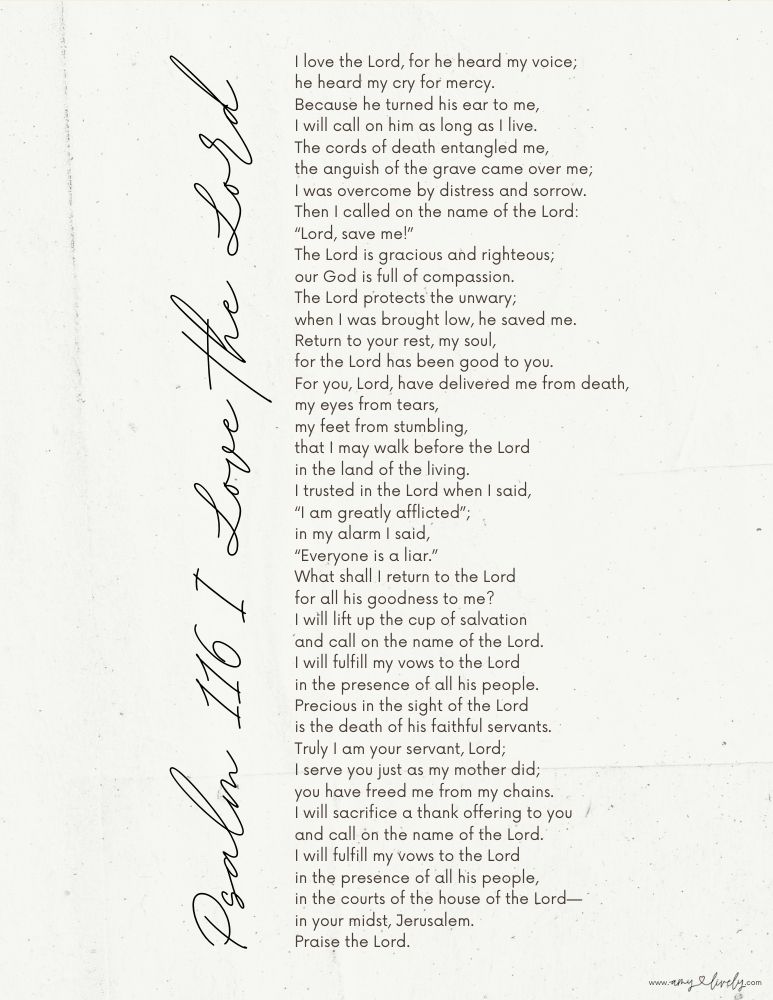 Psalm 116 I Love the Lord
I love the Lord, for he heard my voice;
he heard my cry for mercy.
Because he turned his ear to me,
I will call on him as long as I live.
The cords of death entangled me,
the anguish of the grave came over me;
I was overcome by distress and sorrow.
Then I called on the name of the Lord:
“Lord, save me!”
The Lord is gracious and righteous;
our God is full of compassion.
The Lord protects the unwary;
when I was brought low, he saved me.
Return to your rest, my soul,
for the Lord has been good to you.
For you, Lord, have delivered me from death,
my eyes from tears,
my feet from stumbling,
that I may walk before the Lord
in the land of the living.
I trusted in the Lord when I said,
“I am greatly afflicted”;
in my alarm I said,
“Everyone is a liar.”
What shall I return to the Lord
for all his goodness to me?
I will lift up the cup of salvation
and call on the name of the Lord.
I will fulfill my vows to the Lord
in the presence of all his people.
Precious in the sight of the Lord
is the death of his faithful servants.
Truly I am your servant, Lord;
I serve you just as my mother did;
you have freed me from my chains.
I will sacrifice a thank offering to you
and call on the name of the Lord.
I will fulfill my vows to the Lord
in the presence of all his people,
in the courts of the house of the Lord—
in your midst, Jerusalem.
Praise the Lord.
www.amylively.com